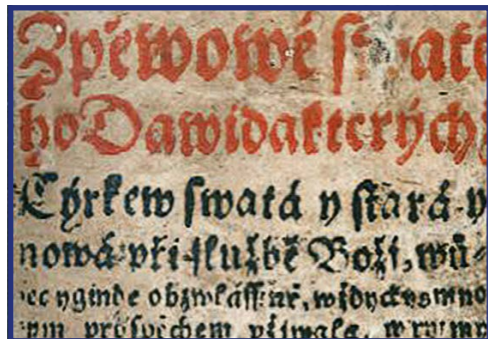 Zpěwowé swate
ho Dawida kterých
Cýrkew swatá y stará y
nowá při službě Boži, wů⸗
ec yginde obzwlásstně, wždyckys mno
prospěchem vžjwala,